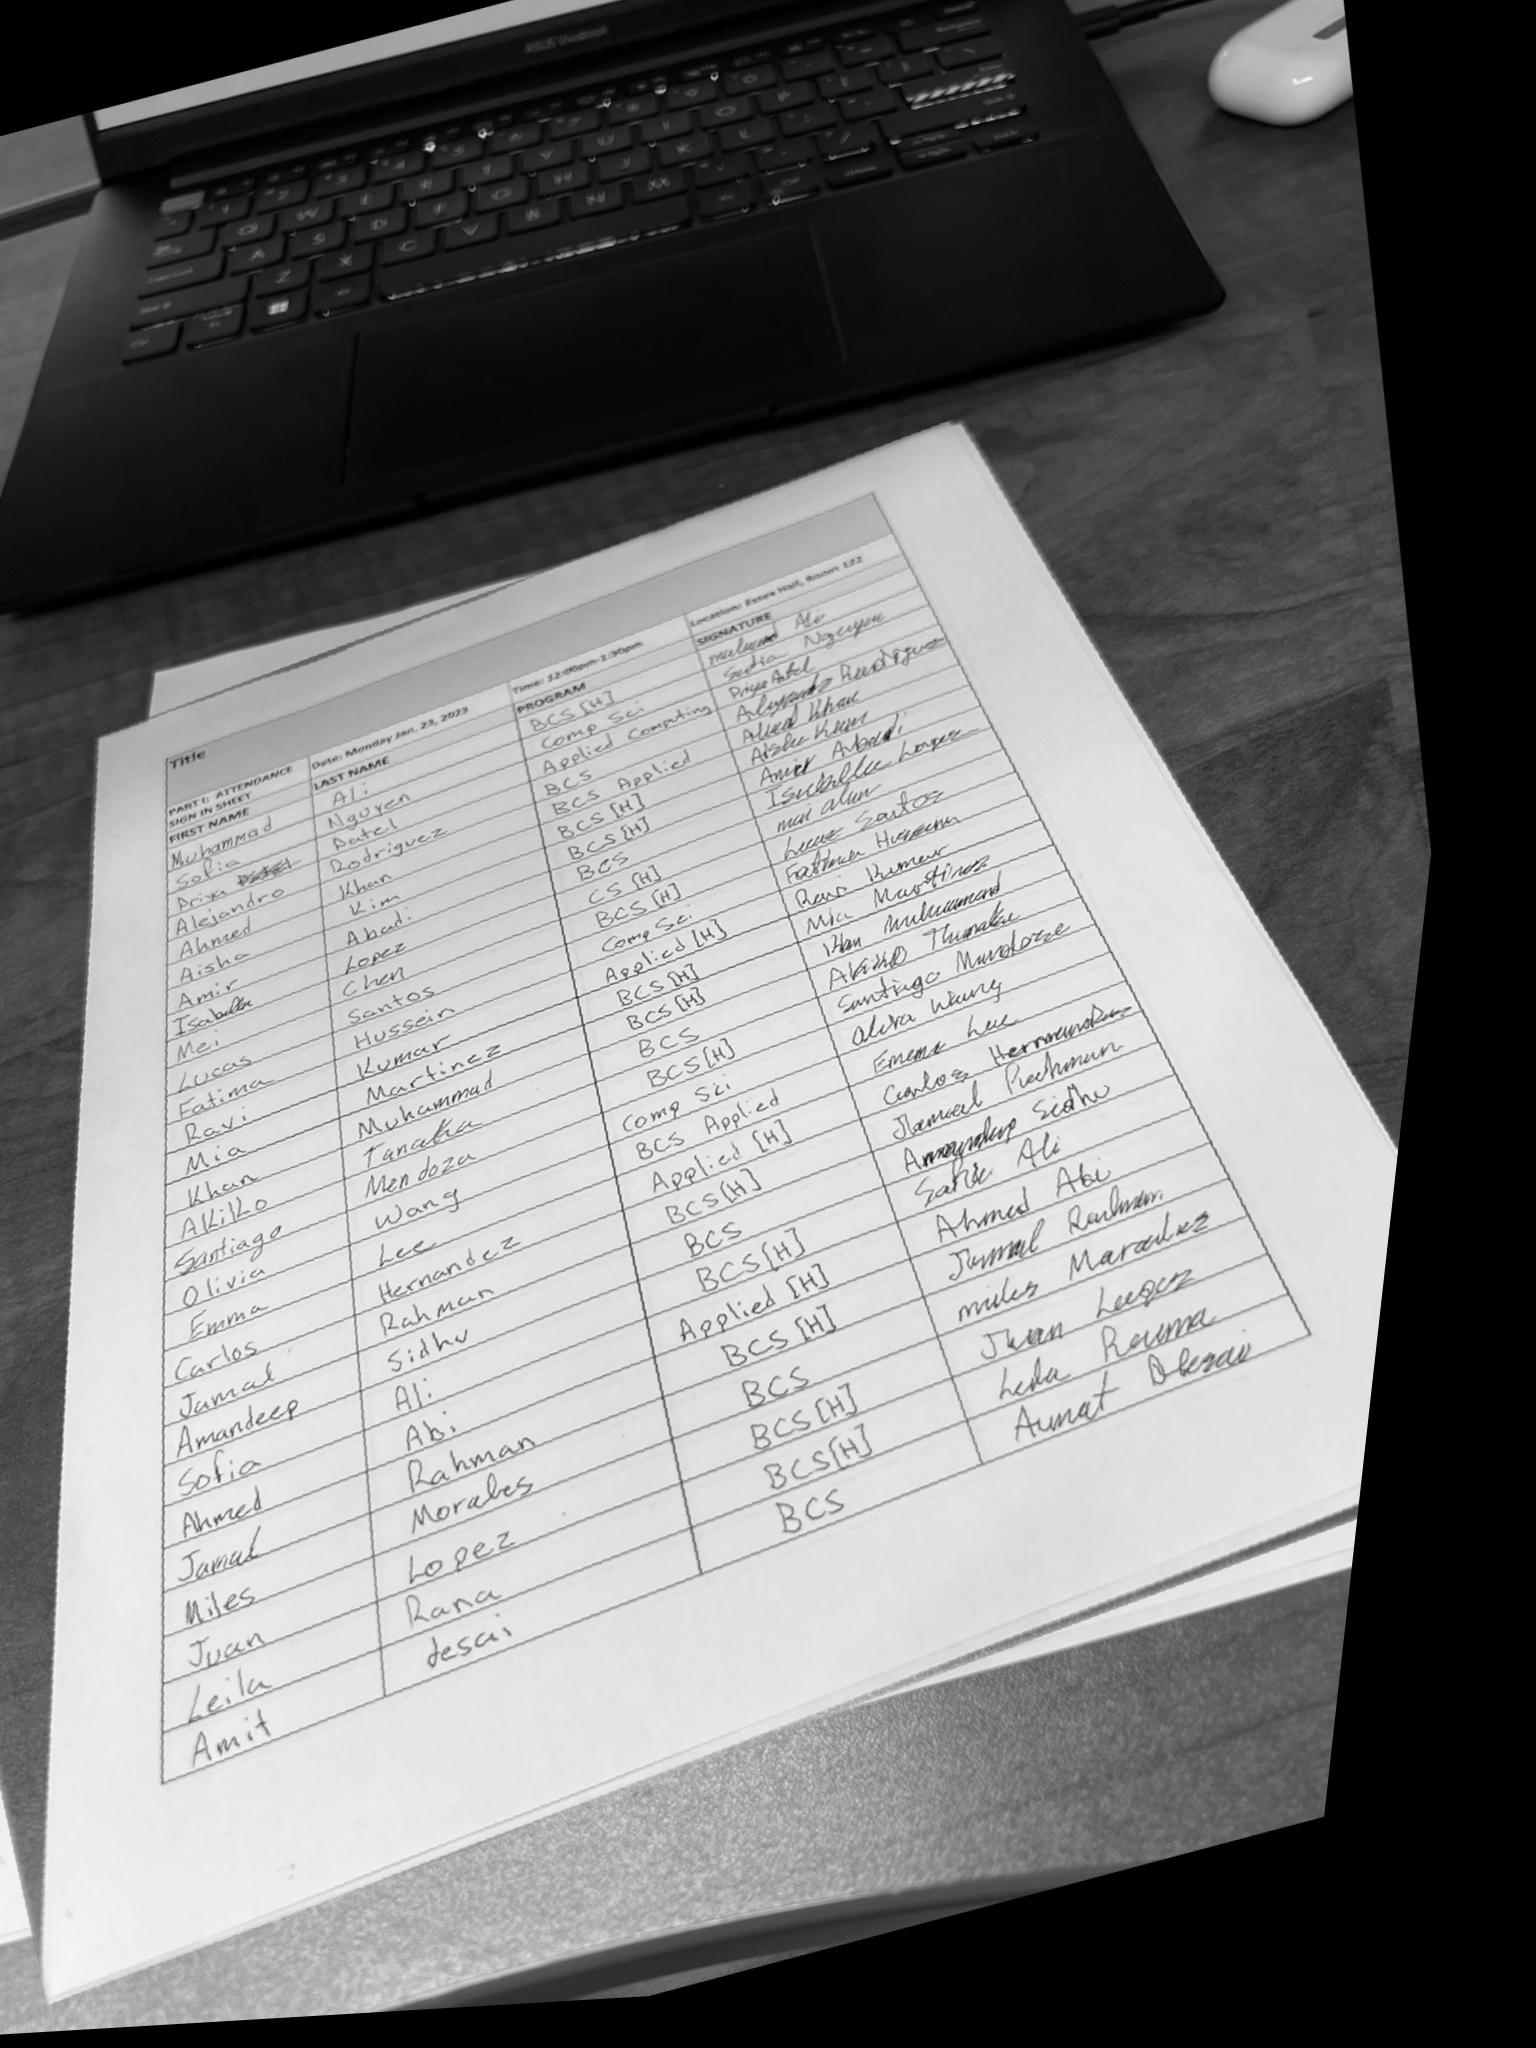 Title
PART I: ATTENDANCE SIGN IN SHEET Date: Monday Jan. 23, 2023 Time: 12:00pm-1:30pm Location: Essex Hall, Room 122
FIRST NAME LAST NAME PROGRAM SIGNATURE
Muhammad Ali BCS [H] Ali
Sofia Nguyen Comp Sci Sofia Nguyen
Priya Patel Applied Computing Priya Patel
Alejandro Rodriguez BCS Alejandro Rodriguez
Ahmed Khan BCS Applied Ahmed Khan
Aisha Kim BCS [H] Aisha Kim
Amir Abadi BCS [H] Amir Abadi
Isabella Lopez BCS Isabella Lopez
Mei Chen CS [H]
Lucas Santos BCS [H] Lucas Santos
Fatima Hussein Comp Sci Fatima Hussein
Ravi Kumar Applied [H] Ravi Kumar
Mia Martinez BCS [H] Mia Martinez
Khan Muhammad BCS [H] Khan Muhammad
Akiko Tanaka BCS Akiko Tanaka
Santiago Mendoza BCS [H] Santiago Mendoza
Olivia Wang Comp Sci Olivia Wang
Emma Lee BCS Applied Emma Lee
Carlos Hernandez Applied [H] Carlos Hernandez
Jamal Rahman BCS [H] Jamal Rahman
Amandeep Sidhu BCS Amandeep Sidhu
Sofia Ali BCS [H] Sofia Ali
Ahmed Abi Applied [H] Ahmed Abi
Jamal Rahman BCS [H] Jamal Rahman
Miles Morales BCS miles Morales
Juan Lopez BCS [H] Juan Lopez
Leila Rana BCS [H] Leila
Amit desai BCS